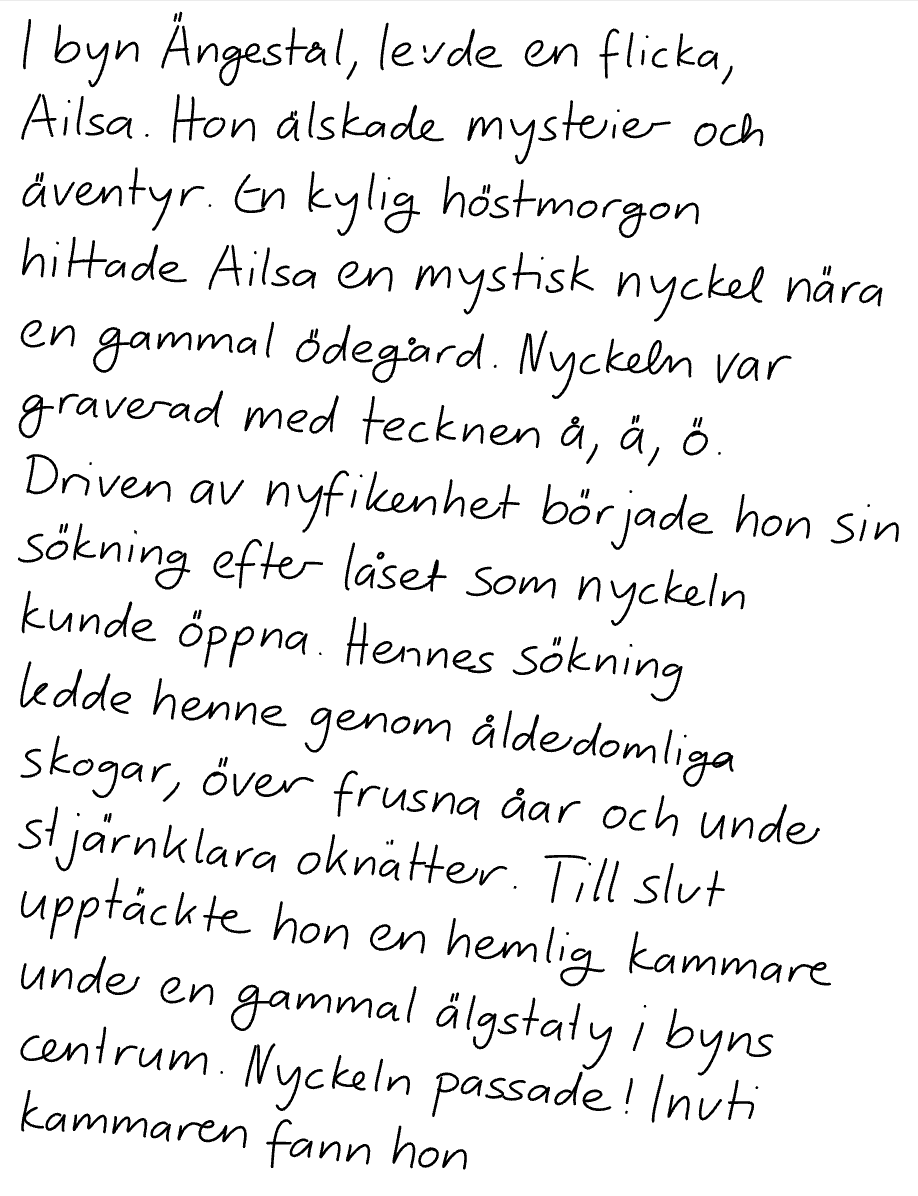 I byn Ängestål, levde en flicka,
Ailsa. Hon älskade mysterier och
äventyr. En kylig höstmorgon
hittade Ailsa en mystisk nyckel nära
en gammal ödegård. Nyckeln var
graverad med tecknen å, ä, ö.
Driven av nyfikenhet började hon sin
sökning efter låset som nyckeln
kunde öppna. Hennes sökning
ledde henne genom ålderdomliga
skogar, över frusna åar och under
stjärnklara oknätter. Till slut
upptäckte hon en hemlig kammare
under en gammal älgstaty i byns
centrum. Nyckeln passade! Inuti
kammaren fann hon